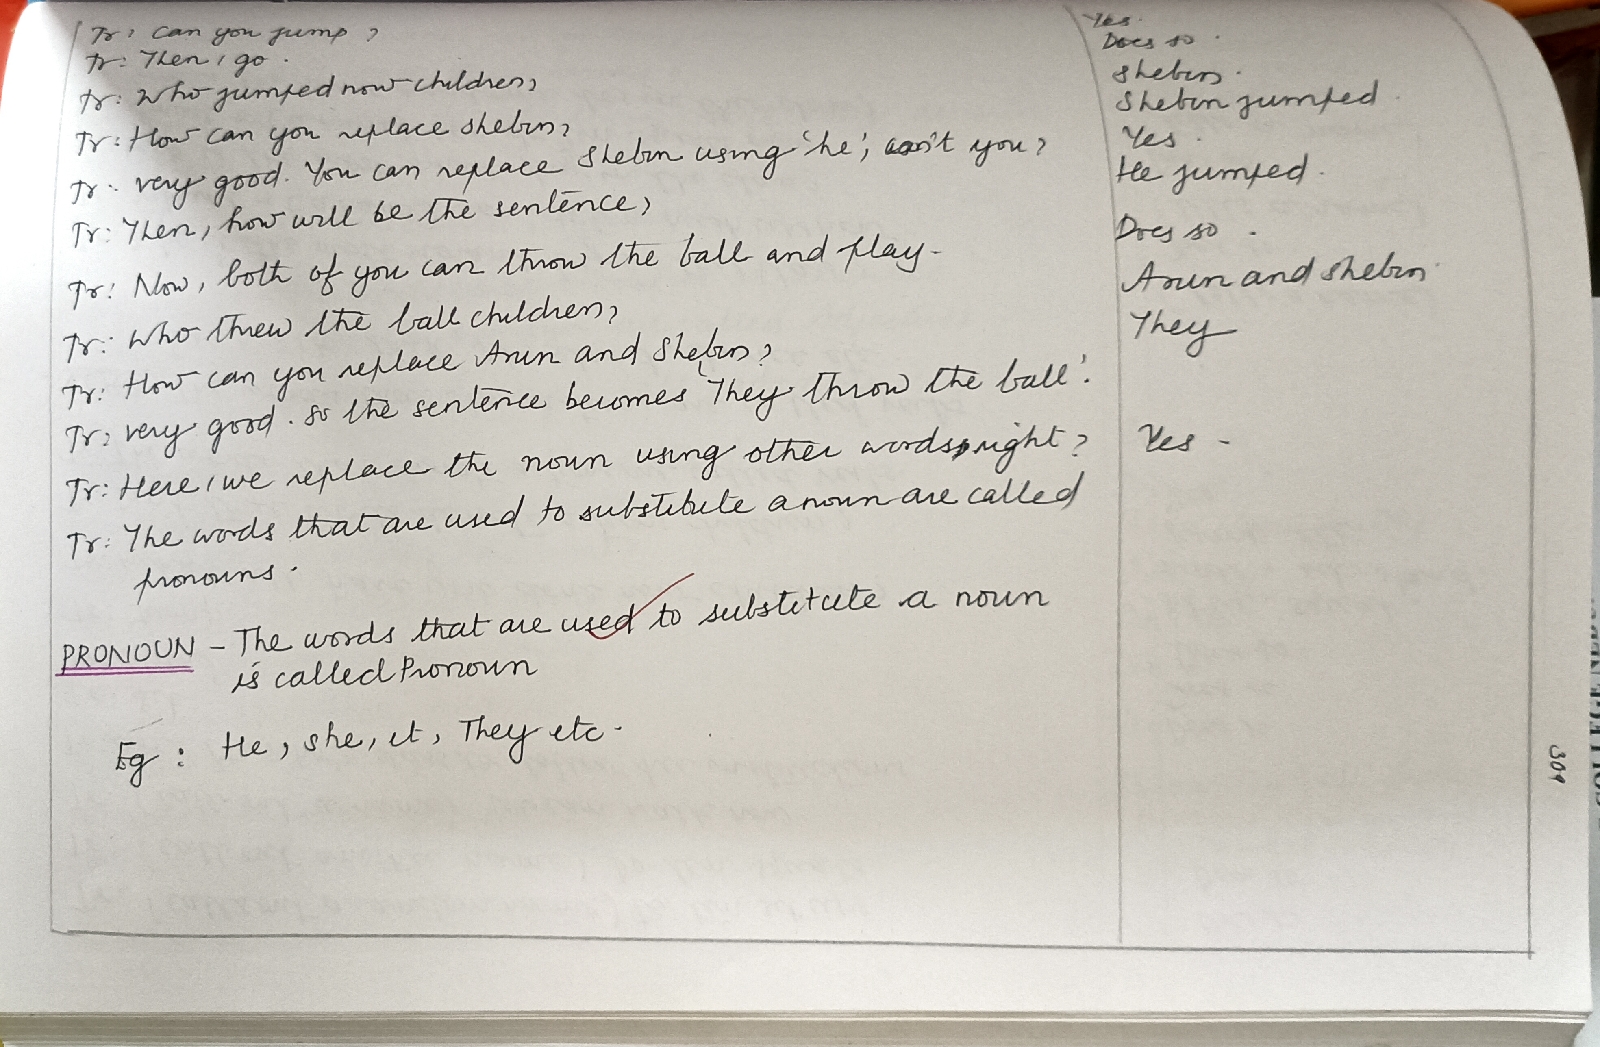 Tr: Can you jump?
Yes.
Tr: Then, go.
Does so.
Tr: Who jumped now children?
Shebin.
Shebin jumped.
Tr: How can you replace Shebin?
Yes.
Tr: Very good. You can replace Shebin using 'he', can't you?
He jumped.
Tr: Then, how will be the sentence?
Tr: Now, both of you can throw the ball and play.
Does so.
Tr: Who threw the ball children?
Arun and Shebin.
Tr: How can you replace Arun and Shebin?
They
Tr: very good. So the sentence becomes 'They throw the ball'.
Tr: Here, we replace the noun using other words, right?
Yes.
Tr: The words that are used to substitute a noun are called
pronouns.
PRONOUN - The words that are used to substitute a noun
is called Pronoun
Eg: He, she, it, They etc.
309